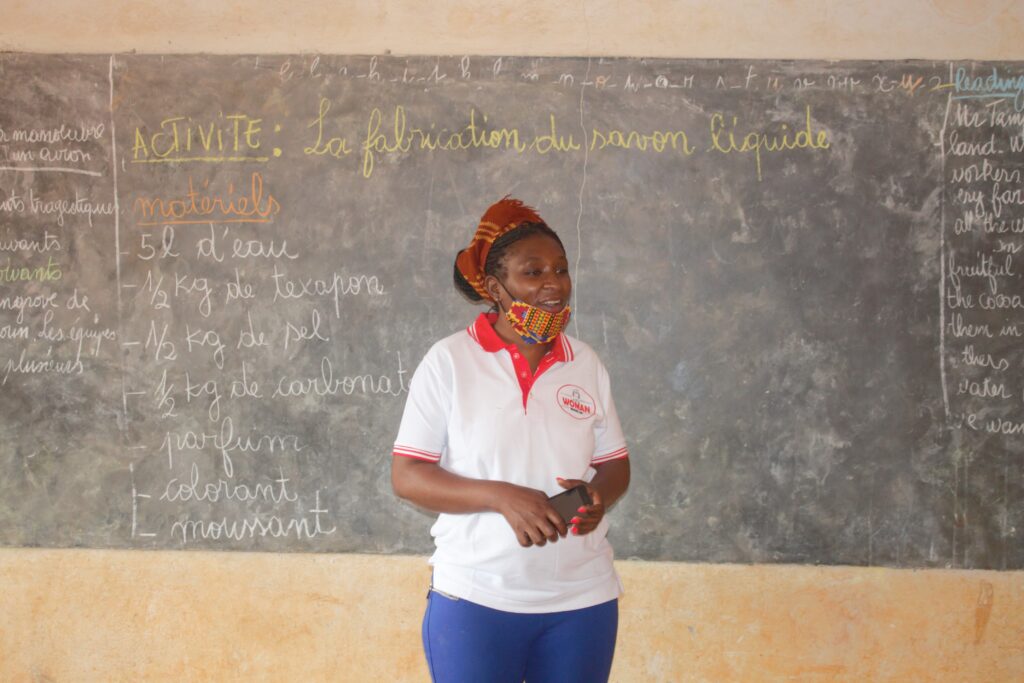 ACTIVITÉ : La fabrication du savon liquide
matériels
5l d'eau
- ½ kg de texapon
- ½ kg de sel
- ½ kg de carbonat
- parfum
- colorant
- moussant
manoeuvre
un avion
uvants
olvants
ngrove de
oun. Les équipes
plusieurs
WOMAN
Reading
Mr Tam
land. W
workers
ery far
all the co
in
fruitful,
the cocoa
them in
thers
water
e wan